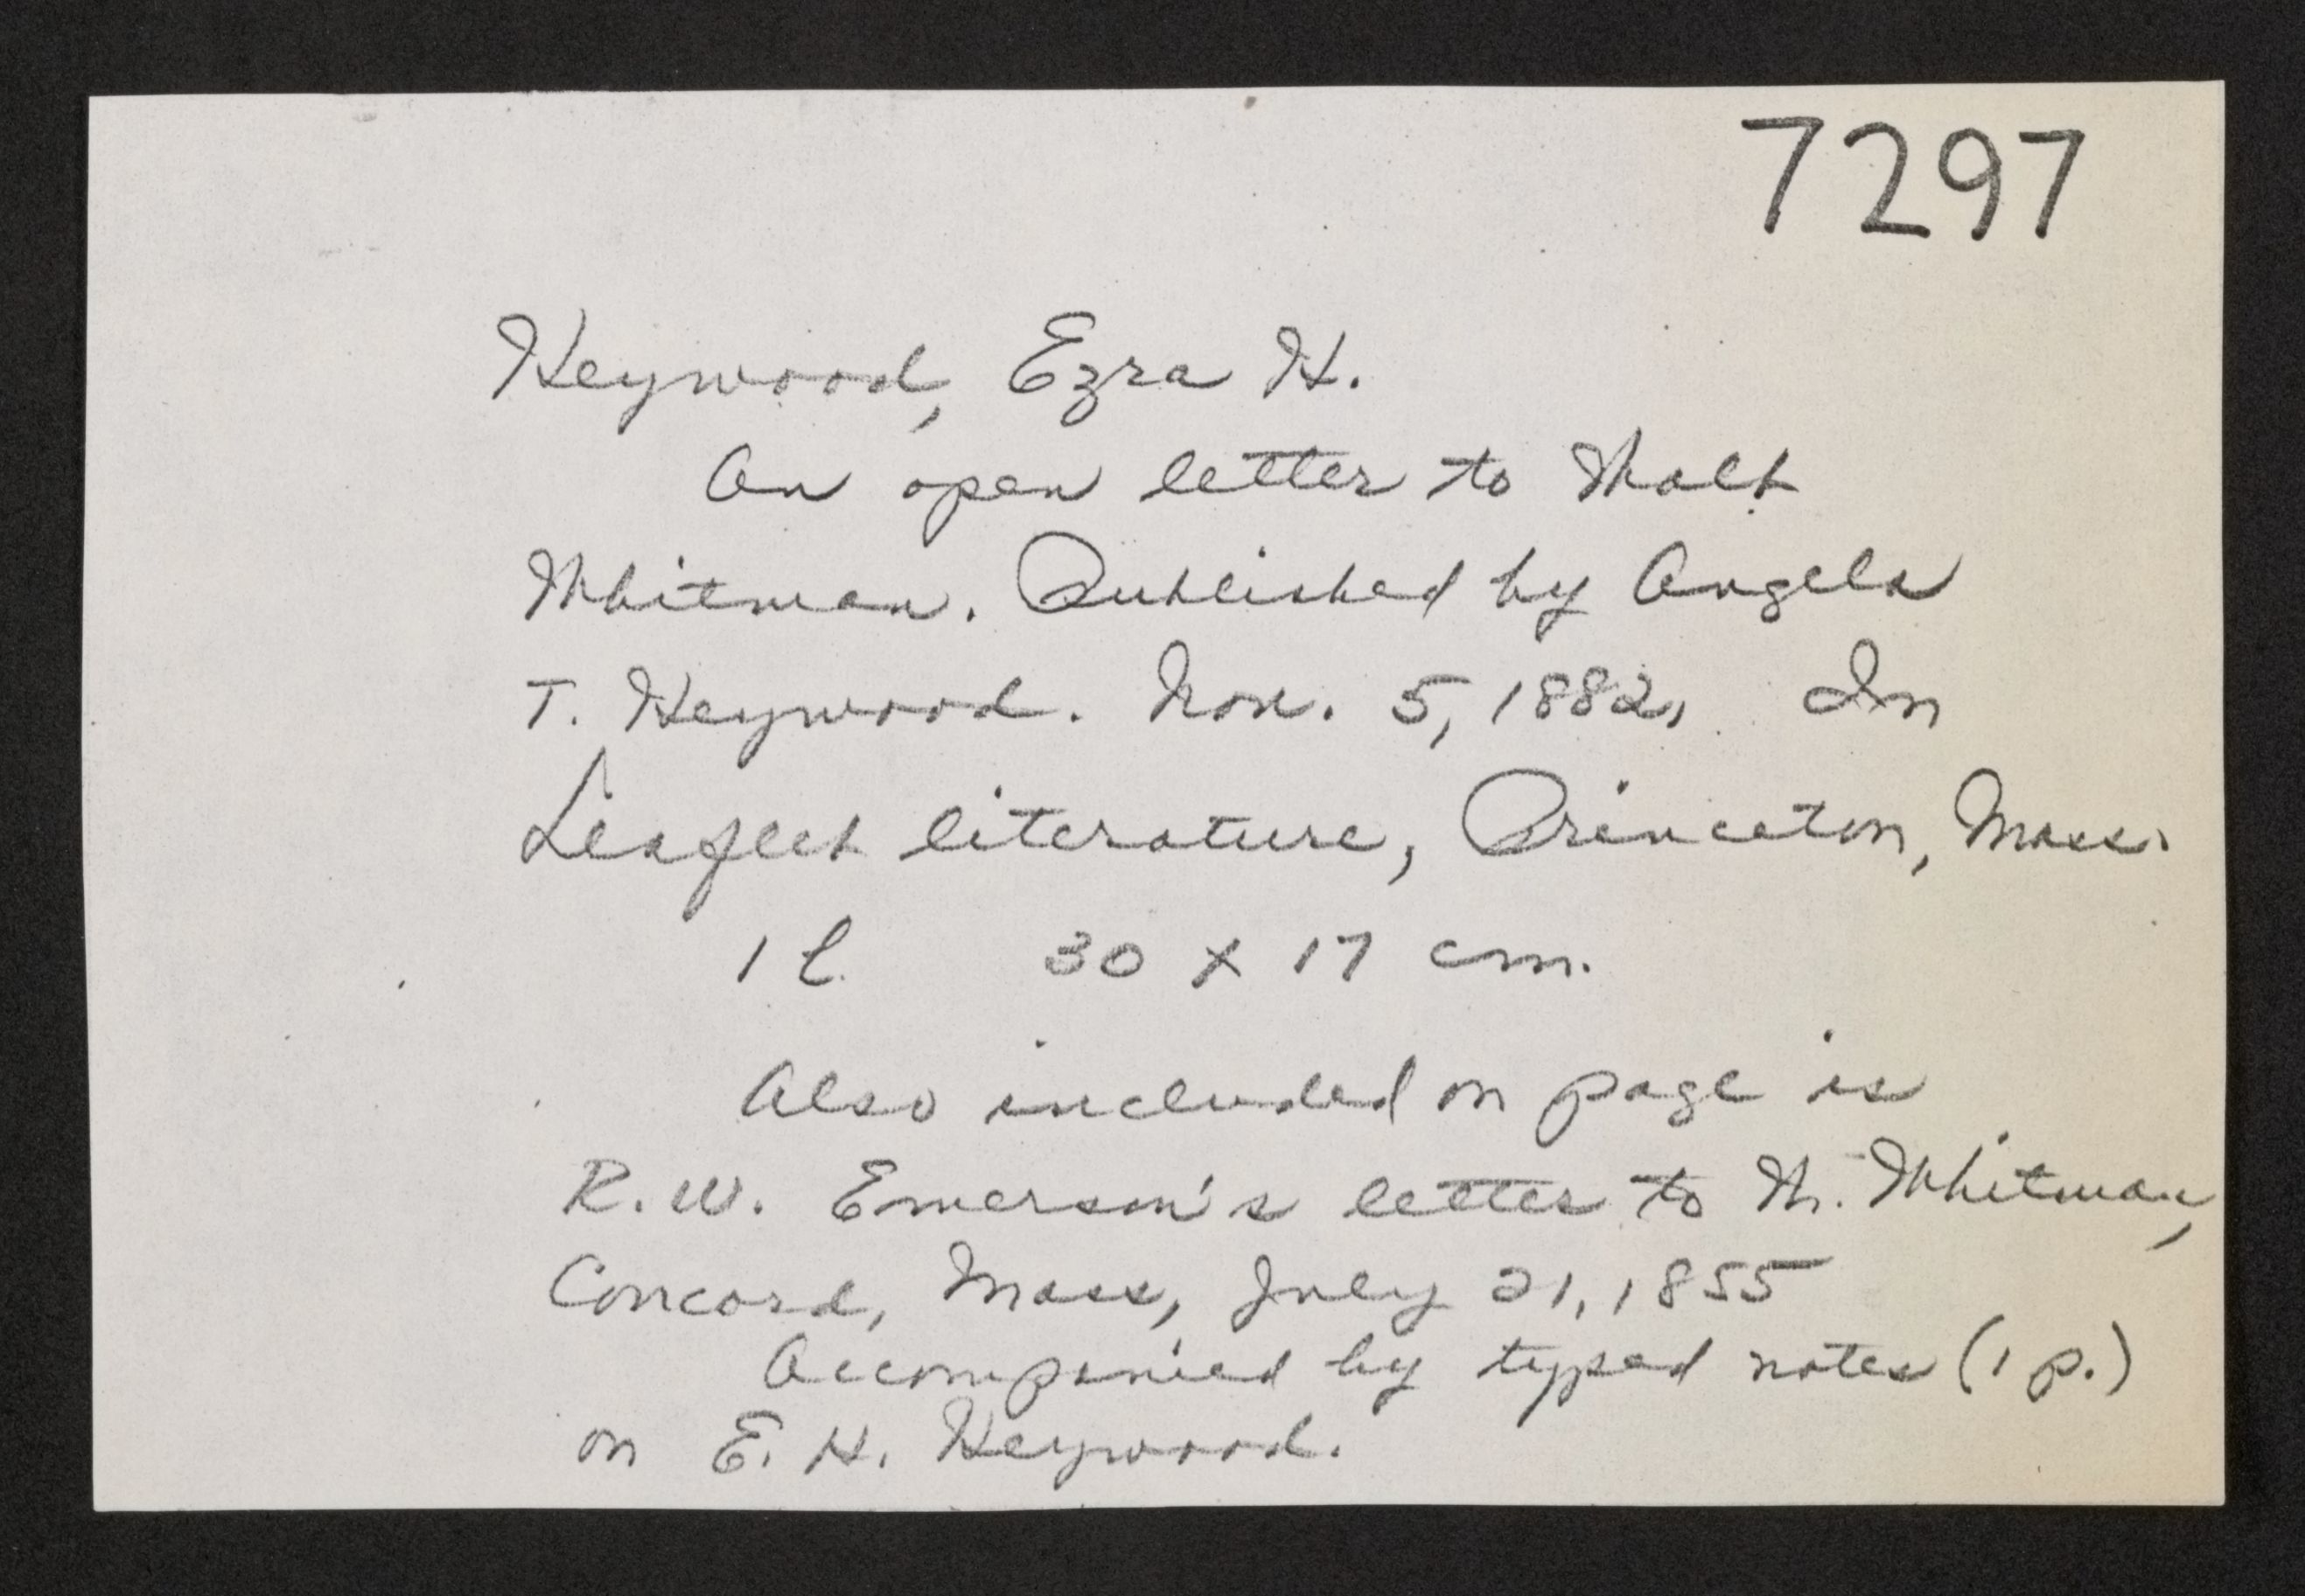 7297
Heywood, Ezra H.
An open letter to Walt
Whitman. Published by Angela
T. Heywood. Nov. 5, 1882. In
Leaflet literature, Princeton, Mass.
1 l. 30 x 17 cm.
Also included on page is
R. W. Emerson's letter to W. Whitman,
Concord, Mass, July 21, 1855
Accompanied by typed notes (1 p.)
on E. H. Heywood.